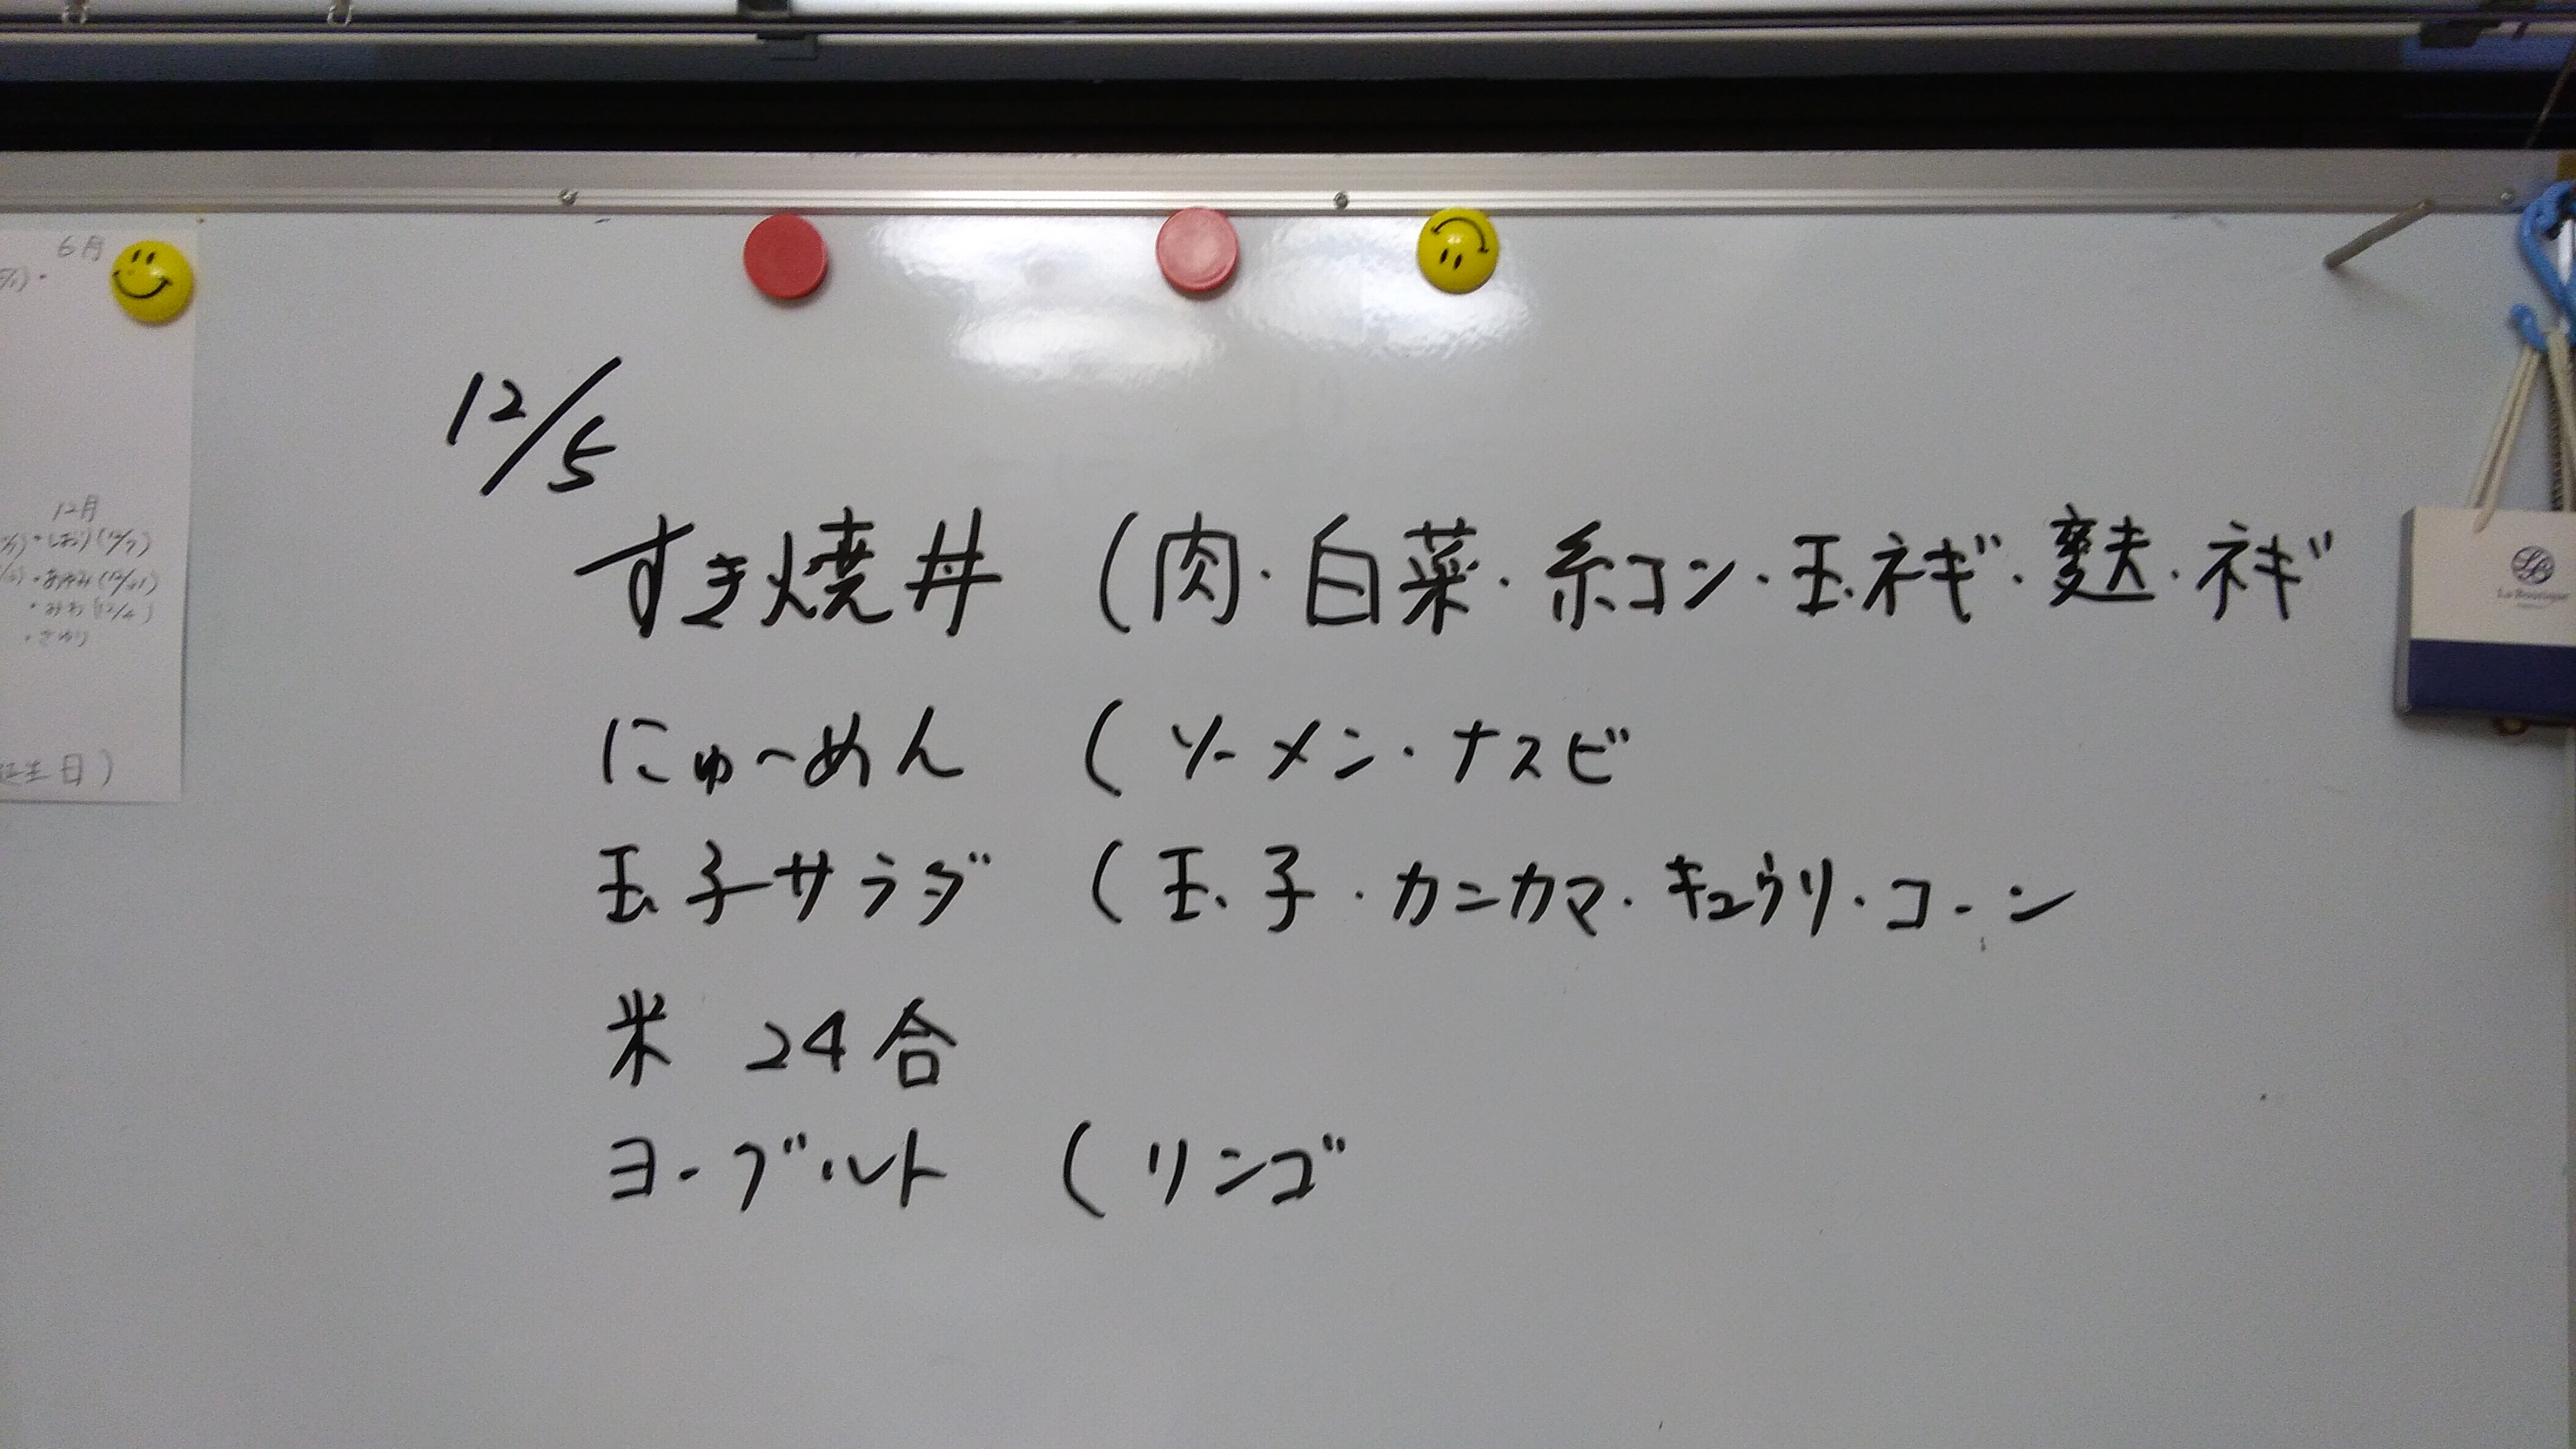 12/5
すき焼丼 (肉・白菜・糸コン・玉ネギ・麩・ネギ
にゅ〜めん (ソーメン・ナスビ
玉子サラダ (玉子・カニカマ・キュウリ・コーン
米 24合
ヨーグルト (リンゴ
6月
12月
・しおり(12/7)
・みわ(12/4)
・さゆり
誕生日)